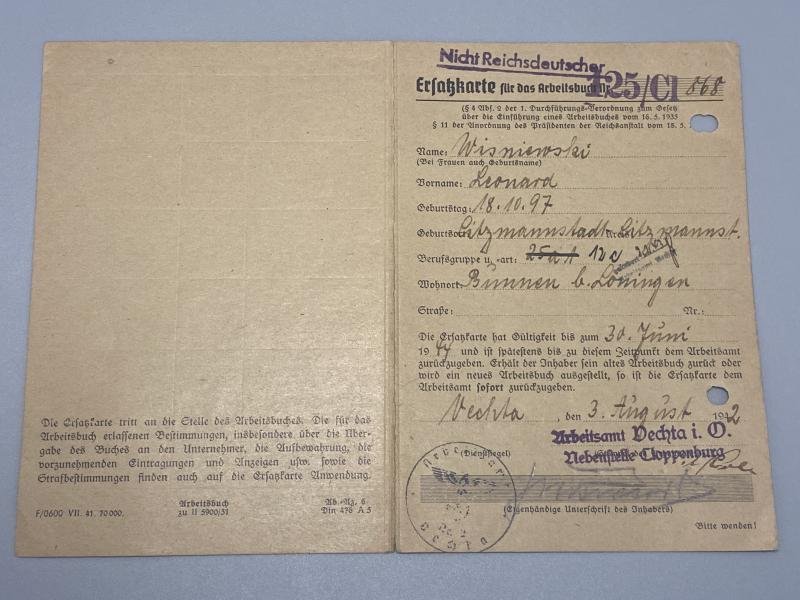 Die Ersatzkarte tritt an die Stelle des Arbeitsbuches. Die für das
Arbeitsbuch erlassenen Bestimmungen, insbesondere über die Über-
gabe des Buches an den Unternehmer, die Aufbewahrung, die
vorzunehmenden Eintragungen und Anzeigen usw. sowie die
Strafbestimmungen finden auch auf die Ersatzkarte Anwendung.
F/0600 VII. 41. 70 000.
Arbeitsbuch
zu II 5900/31
Ab.-Nz. 6
Din 476 A 5
Nicht Reichsdeutscher
Ersatzkarte für das Arbeitsbuch Nr. 125/Cl 868
(§ 4 Abs. 2 der 1. Durchführungs-Verordnung zum Gesetz
über die Einführung eines Arbeitsbuches vom 16. 5. 1935
§ 11 der Anordnung des Präsidenten der Reichsanstalt vom 18. 5.
Name: Wisniewski
(Bei Frauen auch Geburtsname)
Vorname: Leonard
Geburtstag: 18.10.97
Geburtsort: Litzmannstadt Kreis Litzmannst.
Berufsgruppe u. -art: 12c
Wohnort: Bunnen b. Löningen
Straße: Nr.:
Die Ersatzkarte hat Gültigkeit bis zum 30. Juni
1944 und ist spätestens bis zu diesem Zeitpunkt dem Arbeitsamt
zurückzugeben. Erhält der Inhaber sein altes Arbeitsbuch zurück oder
wird ein neues Arbeitsbuch ausgestellt, so ist die Ersatzkarte dem
Arbeitsamt sofort zurückzugeben.
Vechta, den 3. August 1942
Arbeitsamt Vechta i. O.
(Dienstsiegel)
Nebenstelle Cloppenburg
(Eigenhändige Unterschrift des Inhabers)
Bitte wenden!